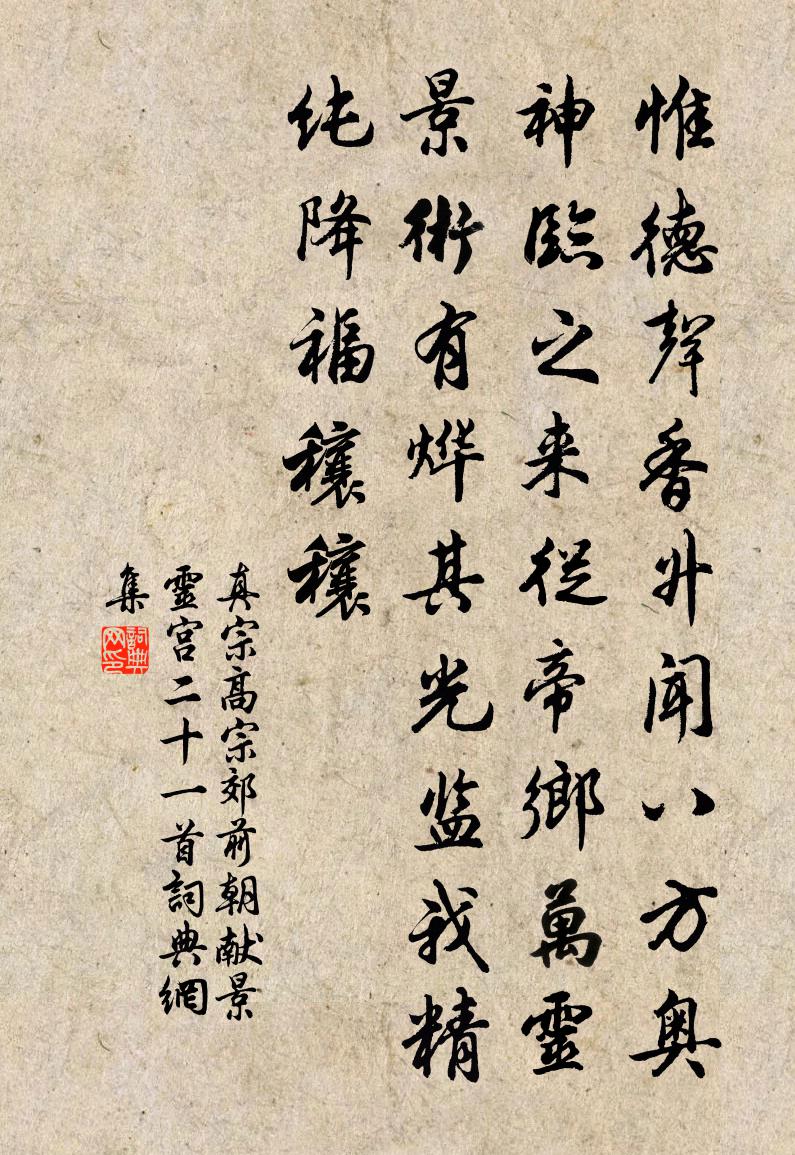 惟德聲香升聞八方奥
神臨之来從帝鄉萬靈
景衛有烨其光监我精
纯降福穰穰
真宗高宗郊前朝献景
靈宫二十一首詞典網
集
詞典网印